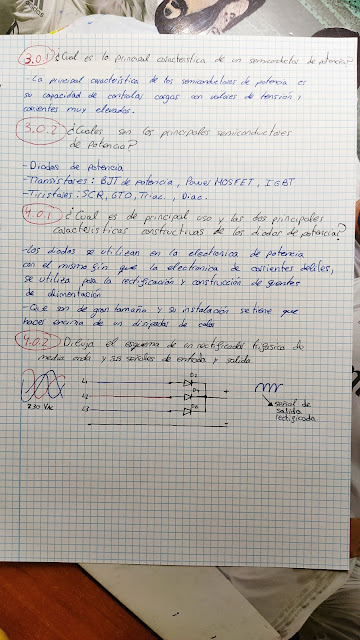 3.0.1 ¿Cual es la principal caracteristica de un semiconductor de potencia?
- La principal caracteristica de los semiconductores de potencia es
su capacidad de controlar cargas con valores de tensión y
corrientes muy elevados.
3.0.2 ¿Cuales son los principales semiconductores
de potencia?
- Diodos de potencia
- Transistores: BJT de potencia, Power MOSFET, IGBT
- Tiristores: SCR, GTO, Triac., Diac.
4.0.1 ¿Cual es de principal uso y las dos principales
caracteristicas constructivas de los diodos de potencia?
- Los diodos se utilizan en la electronica de potencia
con el mismo fin que la electronica de corrientes debiles,
se utiliza para la rectificación y construcción de fuentes
de alimentación
- Que son de gran tamaña y su instalación se tiene que
hacer encima de un disipador de calor
4.0.2 Dibuja el esquema de un rectificador trifasico de
media onda y sus señales de entrada y salida
L1
L2
L3
230 VAC
+
-
señal de
salida
rectificada